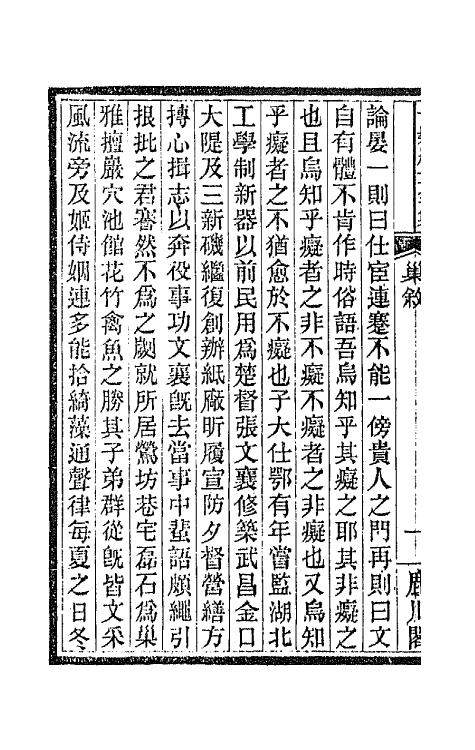 巢敘
一
論晏一則曰仕宦連蹇不能一傍貴人之門再則曰文
自有體不肯作時俗語吾烏知乎其癡之耶其非癡之
也且烏知乎癡者之非不癡不癡者之非癡也又烏知
乎癡者之不猶愈於不癡也子大仕鄂有年嘗監湖北
工學制新器以前民用爲楚督張文襄修築武昌金口
大隄及三新磯繼復創辦紙廠昕履宣防夕督營繕方
摶心揖志以奔役事功文襄旣去當事中蜚語頗繩引
拫批之君謇然不爲之劌就所居鶯坊巷宅磊石爲巢
雅擅巖穴池館花竹禽魚之勝其子弟群從旣皆文采
風流旁及姬侍姻連多能拾綺藻通聲律每夏之日冬